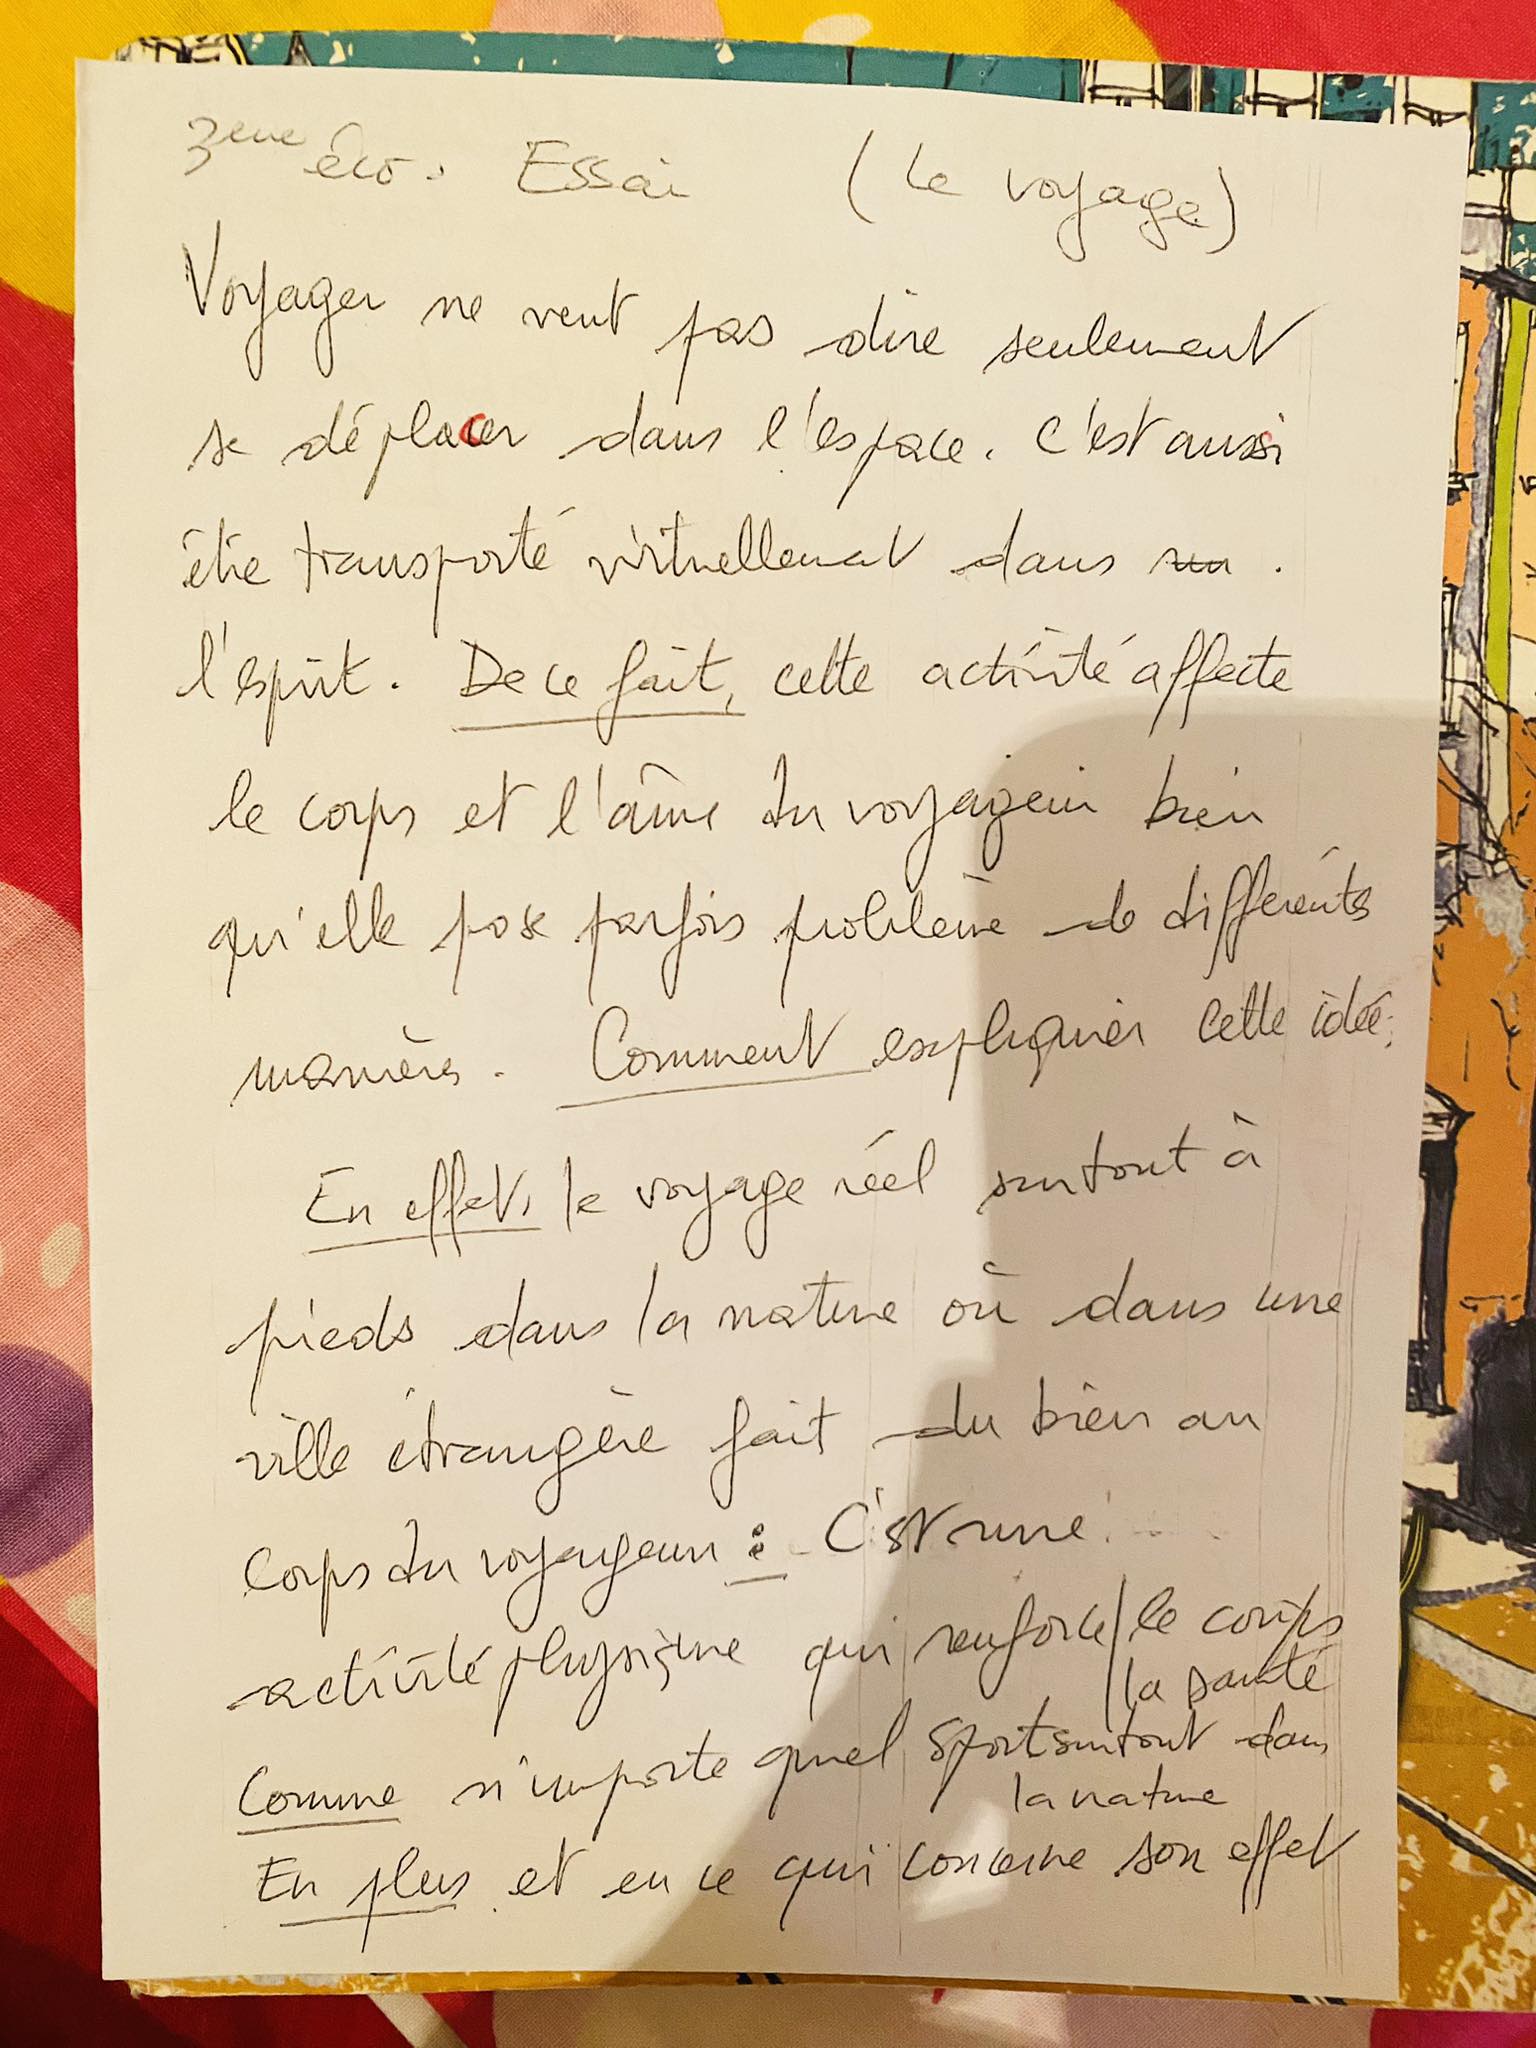 3eme éco. Essai (Le voyage)
Voyager ne veut pas dire seulement
se déplacer dans l'espace. C'est aussi
être transporté virtuellement dans
l'esprit. De ce fait, cette activité affecte
le corps et l'âme du voyageur bien
qu'elle pose parfois problème de différentes
manières. Comment expliquer cette idée
En effet, le voyage réel surtout à
pieds dans la nature où dans une
ville étrangère fait du bien au
corps du voyageur : C'est une
activité physique qui renforce / le corps
la santé
Comme n'importe quel sport surtout dans
la nature
En plus et en ce qui concerne son effet